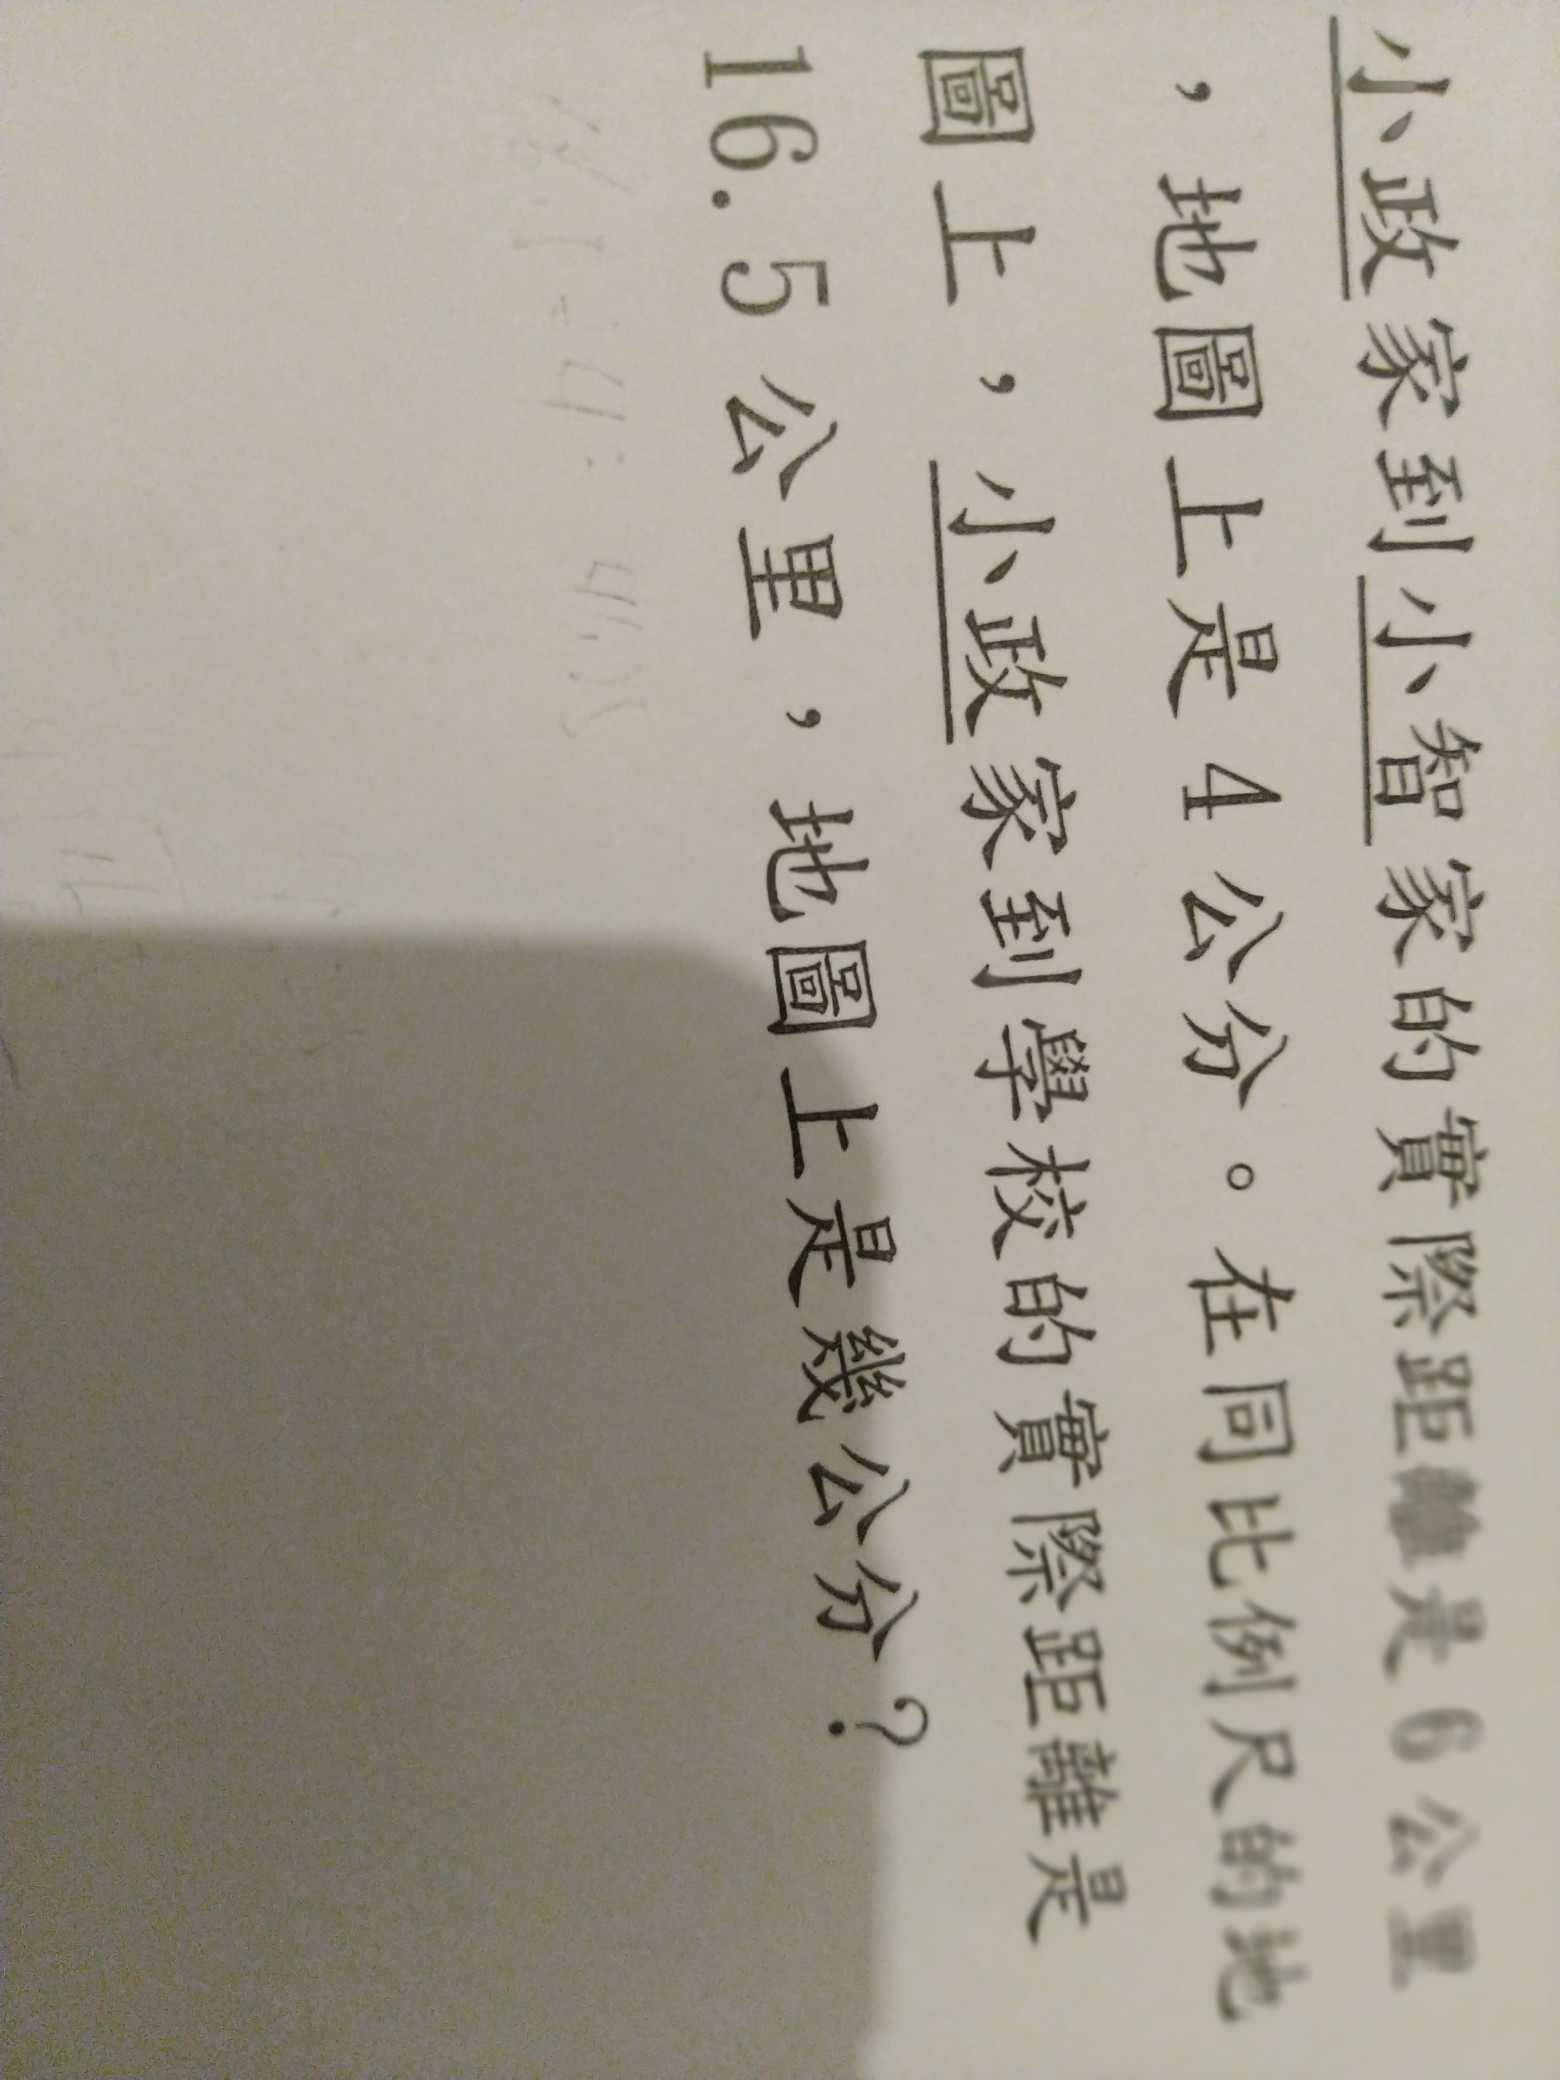 小政家到小智家的實際距離是6公里
，地圖上是4公分。在同比例尺的地
圖上，小政家到學校的實際距離是
16.5公里，地圖上是幾公分？